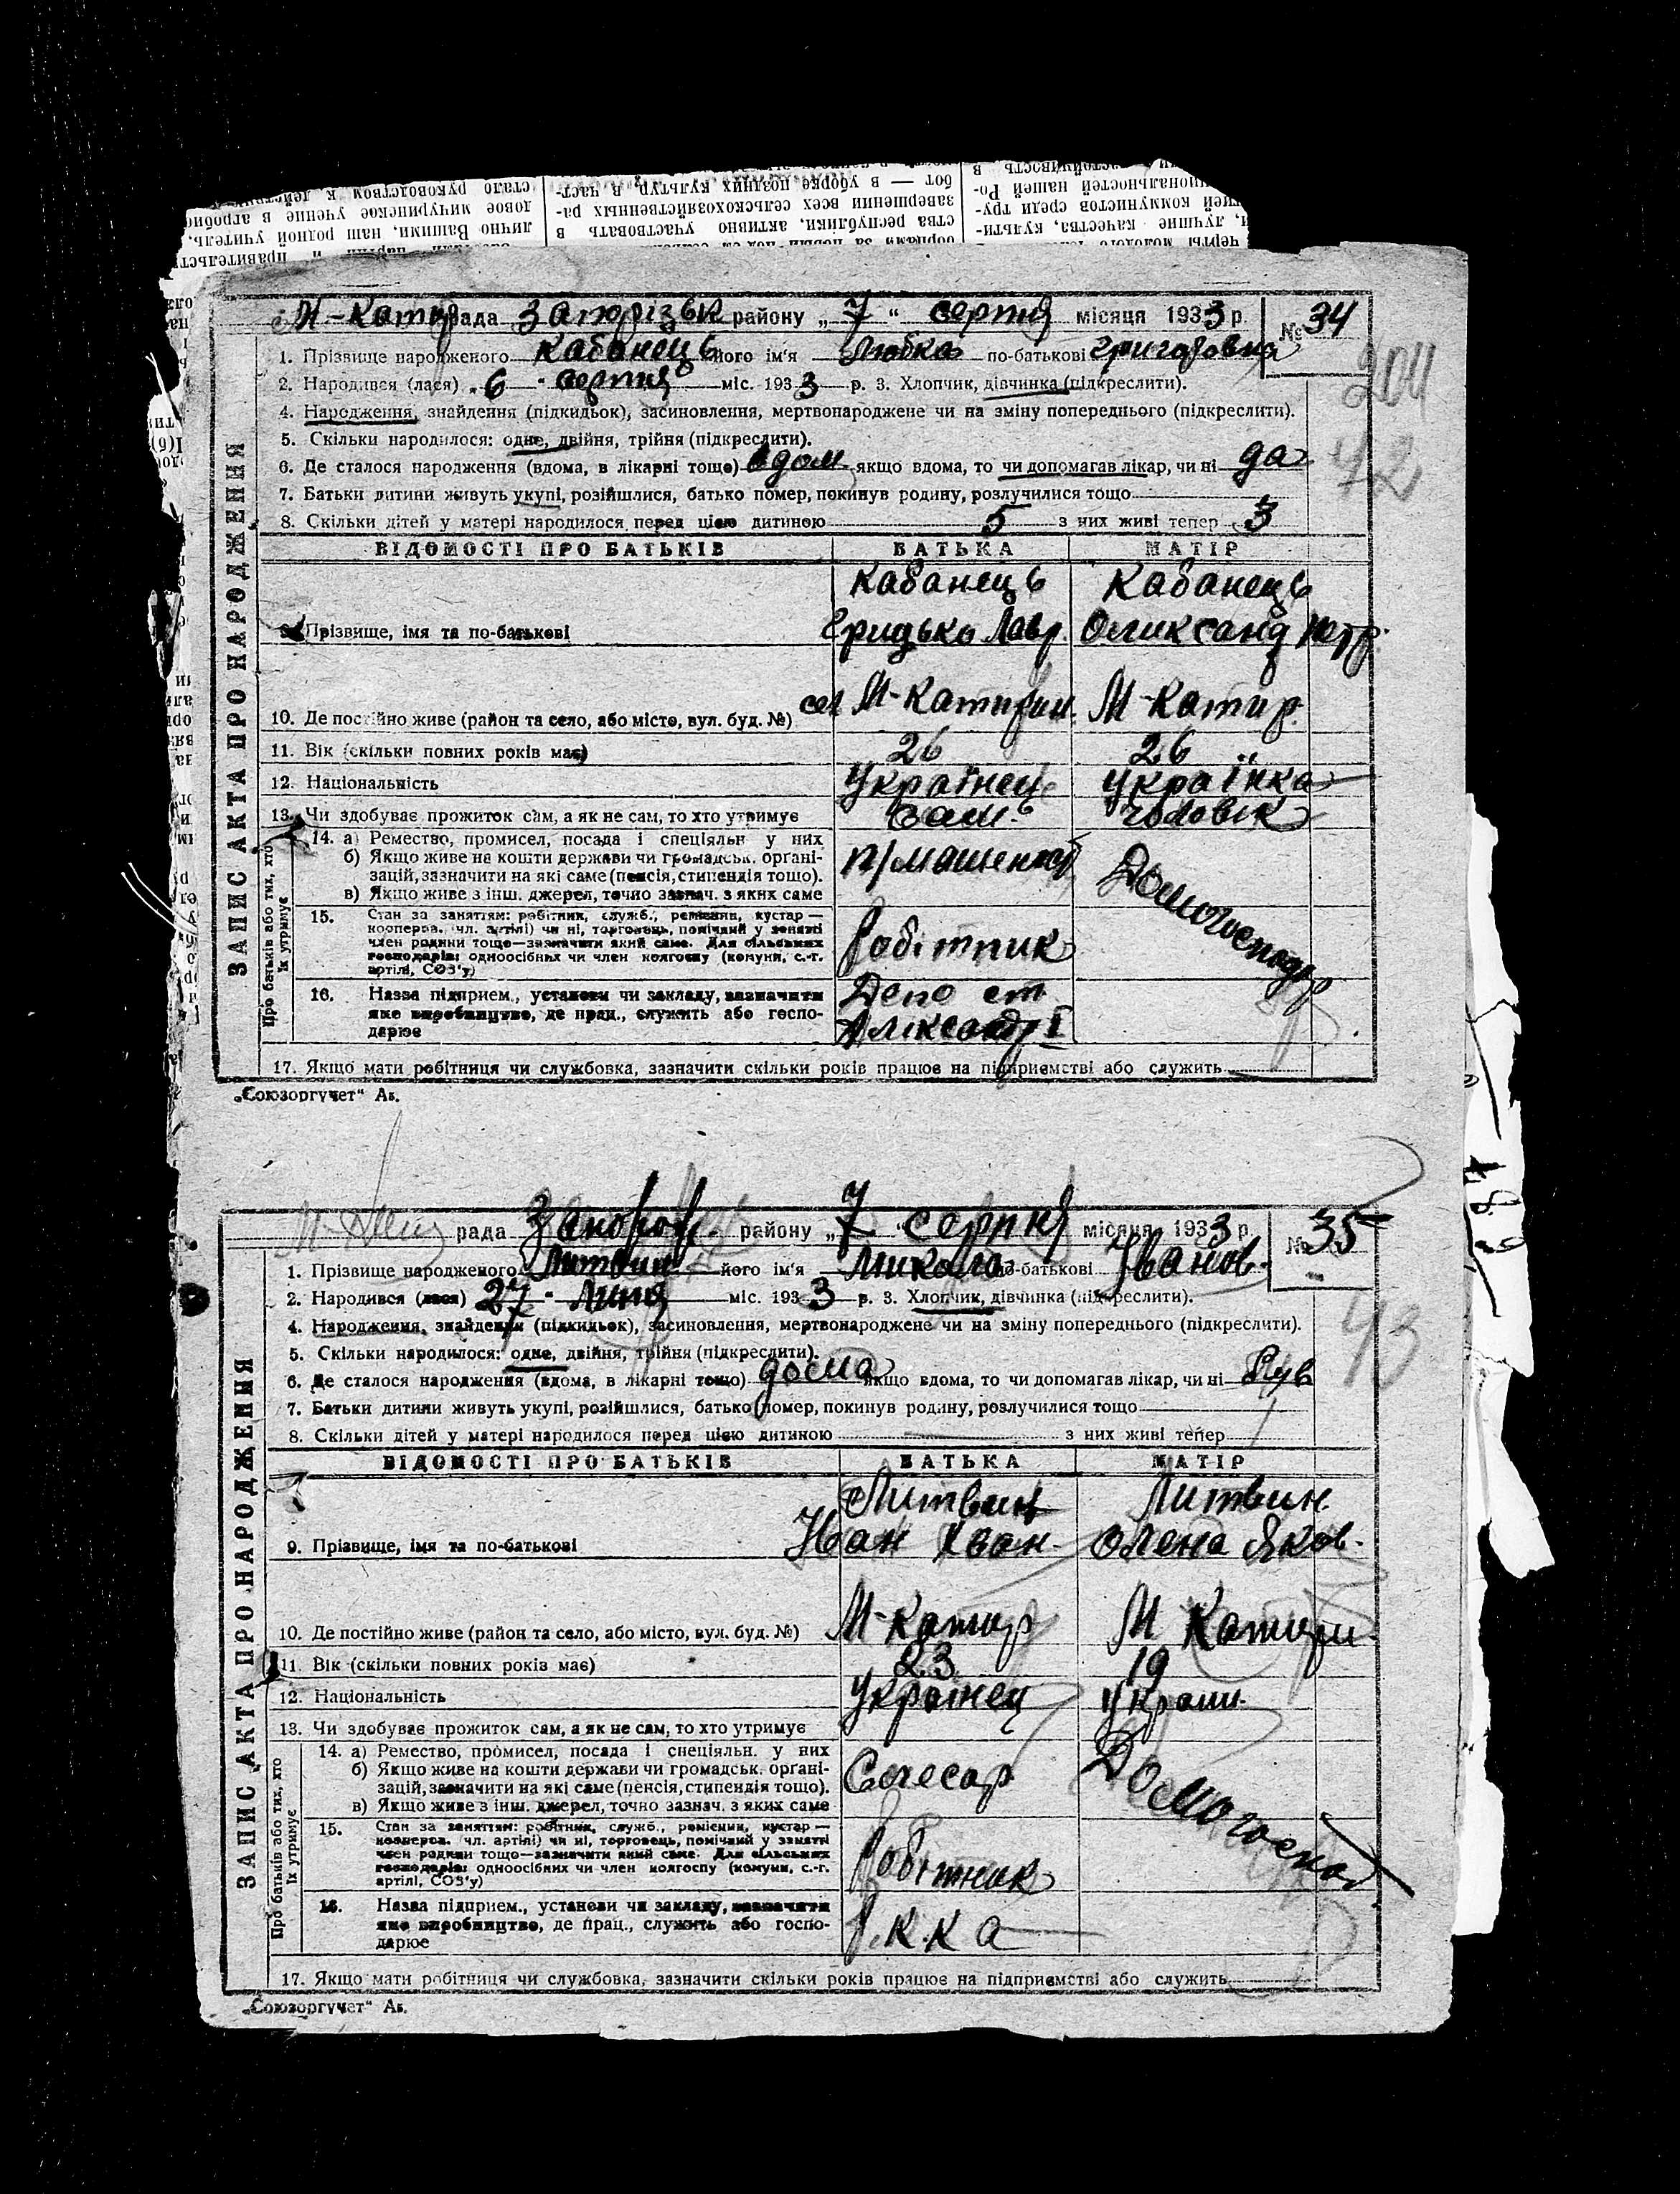 М-Катир рада Запорізьк району „7“ серпня місяця 1933 р. № 34
1. Прізвище народженого Кабанець його ім'я Любка по-батькові Григоровна
2. Народився (лася) 6 серпня міс. 1933 р. 3. Хлопчик, дівчинка (підкреслити).
4. Народження, знайдення (підкидьок), засиновлення, мертвонароджене чи на зміну попереднього (підкреслити).
5. Скільки народилося: одне, двійня, трійня (підкреслити).
6. Де сталося народження (вдома, в лікарні тощо) вдом якщо вдома, то чи допомагав лікар, чи ні да
7. Батьки дитини живуть укупі, розійшлися, батько помер, покинув родину, розлучилися тощо
8. Скільки дітей у матері народилося перед цією дитиною 5 з них живі тепер 3
204
42
ЗАПИС АКТА ПРО НАРОДЖЕННЯ
ВІДОМОСТІ ПРО БАТЬКІВ БАТЬКА МАТІР
Кабанець Кабанець
9. Прізвище, імя та по-батькові Гридько Лавр. Олександ Петр.
10. Де постійно живе (район та село, або місто, вул. буд. №) сел М-Катирин. М-Катир.
11. Вік (скільки повних років має) 26 26
12. Національність Українець Українка
13. Чи здобуває прожиток сам, а як не сам, то хто утримує Сам Чоловік
Про батьків або тих, хто їх утримує
14. а) Ремество, промисел, посада і спеціяльн у них
б) Якщо живе на кошти держави чи громадськ. орґані-
зацій, зазначити на які саме (пенсія, стипендія тощо). п/машиніст Домогосподар
в) Якщо живе з інш. джерел, точно зазнач. з яких саме
15. Стан за заняттям: робітник, служб., ремісник, кустар —
кооперов. чл. артілі) чи ні, торговець, помічний у занятті
член родини тощо—зазначити який саме. Для сільських
господарів: одноосібних чи член колгоспу (комуни, с.-г. Робітник
артілі, СОЗ'у)
16. Назва підприєм., установи чи закладу, зазначити Депо ст
яке виробництво, де прац., служить або госпо-
дарює Александр I
17. Якщо мати робітниця чи службовка, зазначити скільки років працює на підприємстві або служить
„Союзоргучет“ Ав.
рада Запорож. району „7“ серпня місяця 1933 р. № 35
1. Прізвище народженого Литвин його ім'я Микола по-батькові Іванов.
2. Народився (лася) 27 Липня міс. 1933 р. 3. Хлопчик, дівчинка (підкреслити).
4. Народження, знайдення (підкидьок), засиновлення, мертвонароджене чи на зміну попереднього (підкреслити).
5. Скільки народилося: одне, двійня, трійня (підкреслити).
6. Де сталося народження (вдома, в лікарні тощо) дома якщо вдома, то чи допомагав лікар, чи ні був
7. Батьки дитини живуть укупі, розійшлися, батько помер, покинув родину, розлучилися тощо
8. Скільки дітей у матері народилося перед цією дитиною з них живі тепер
43
ЗАПИС АКТА ПРО НАРОДЖЕННЯ
ВІДОМОСТІ ПРО БАТЬКІВ БАТЬКА МАТІР
Литвин Литвин
9. Прізвище, імя та по-батькові Іван Іван. Олена Яков.
10. Де постійно живе (район та село, або місто, вул. буд. №) М-Катир М Катири.
11. Вік (скільки повних років має) 23 19
12. Національність Українец Україн.
13. Чи здобуває прожиток сам, а як не сам, то хто утримує
Про батьків або тих, хто їх утримує
14. а) Ремество, промисел, посада і спеціяльн. у них
б) Якщо живе на кошти держави чи громадськ. орґані-
зацій, зазначити на які саме (пенсія, стипендія тощо). Слесар Домогоспод
в) Якщо живе з інш. джерел, точно зазнач. з яких саме
15. Стан за заняттям: робітник, служб., ремісник, кустар —
кооперов. чл. артілі) чи ні, торговець, помічний у занятті
член родини тощо—зазначити який саме. Для сільських
господарів: одноосібних чи член колгоспу (комуни, с.-г. Робітник
артілі, СОЗ'у)
16. Назва підприєм., установи чи закладу, зазначити
яке виробництво, де прац., служить або госпо- Р.К.К.А
дарює
17. Якщо мати робітниця чи службовка, зазначити скільки років працює на підприємстві або служить
„Союзоргучет“ Ав.